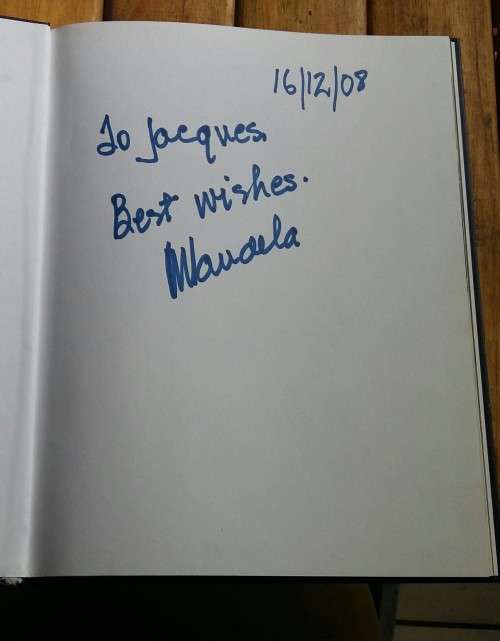 16/12/08
To Jacques.
Best wishes.
Mandela